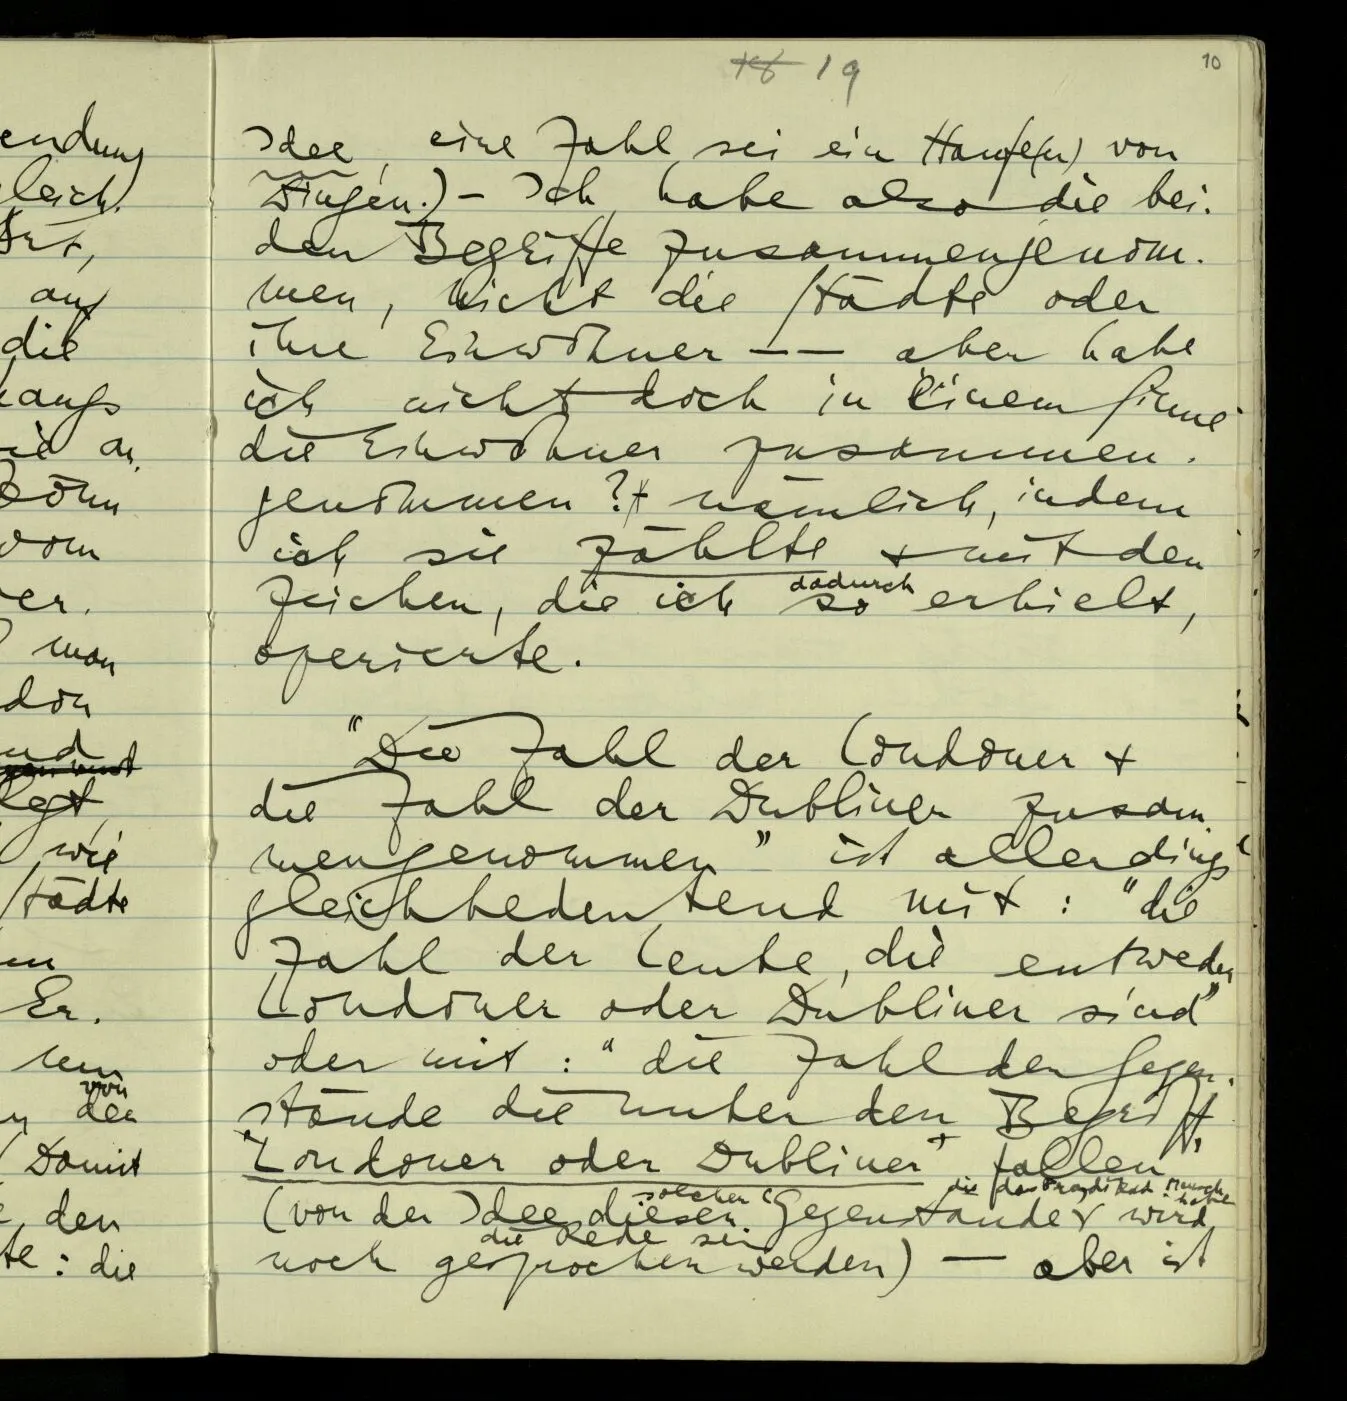 18 19
10
Idee, eine Zahl sei ein Haufe(n) von
Dingen.) – Ich habe also die bei-
den Begriffe zusammengenom-
men, nicht die Städte oder
ihre Einwohner –– aber habe
ich nicht doch in einem Sinne
die Einwohner zusammen-
genommen? nämlich, indem
ich sie zählte & mit den
Zeichen, die ich so dadurch erhielt,
operierte.
"Die Zahl der Londoner &
die Zahl der Dubliner zusam-
mengenommen" ist allerdings
gleichbedeutend mit: "die
Zahl der Leute, die entweder
Londoner oder Dubliner sind"
oder mit: "die Zahl der Gegen-
stände die unter den Begriff
'Londoner oder Dubliner' fallen"
solcher die das Prädikat Mensch haben
(von der Idee dieser 'Gegenstände' wird
die Rede sein
noch gesprochen werden) — aber ist
endung
gleich.
auf
die
wie an
vom
er.
man
don
legt
wie
Städte
Er-
von
der
Damit
den
te: die